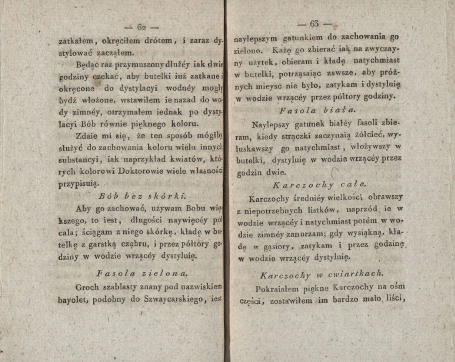 — 62 —
zatkałem, okręciłem drótem, i zaraz dy-
stylować zacząłem.
Będąc raz przymuszony dłużéy iak dwie
godziny czekać, aby butelki iuż zatkane i
okręcone do dystylacyi wodnéy mogły
bydź włożone, wstawiłem ie nazad do wo-
dy zimnéy, otrzymałem iednak po dysty-
lacyi Bób równie pięknego koloru.
Zdaie mi się, że ten sposób mógłby
służyć do zachowania koloru wielu innych
substancyi, iak naprzykład kwiatów, któ-
rych kolorowi Doktorowie wiele własności
przypisuią.
Bób bez skórki.
Aby go zachować, używam Bobu wię-
kszego, to iest, długości naywięcéy pół
cala; ściągam z niego skórkę, kładę w bu-
telkę z garstką cząbru, i przez półtory go-
dziny w wodzie wrzącéy dystyluię.
Fasola zielona,
Groch szablasty znany pod nazwiskiem
bayolet, podobny do Szwaycarskiego, iest
— 63 —
naylepszym gatunkiem do zachowania go
zielono. Każę go zbierać iak na zwyczay-
ny użytek, obieram i kładę natychmiast
w butelki, potrząsaiąc zawsze, aby próż-
nych mieysc nie było, zatykam i dystyluię
w wodzie wrzącéy przez półtory godziny.
Fasola biała.
Naylepszy gatunek białéy fasoli zbie-
ram, kiedy strączki zaczynaią żółcieć, wy-
łuskawszy go natychmiast, włożywszy w
butelki, dystyluię w wodzie wrzącéy przez
godzin dwie.
Karczochy całe.
Karczochy średniéy wielkości, obrawszy
z niepotrzebnych listków, naprzód ie w
wodzie wrzącéy i natychmiast potém w wo-
dzie zimnéy zanurzam; gdy wysiąkną, kła-
dę w gąsiory, zatykam i przez godzinę
w wodzie wrzącéy dystyluię.
Karczochy w cwiartkach.
Pokraiałem piękne Karczochy na ośm
części, zostawiłem im bardzo mało liści,